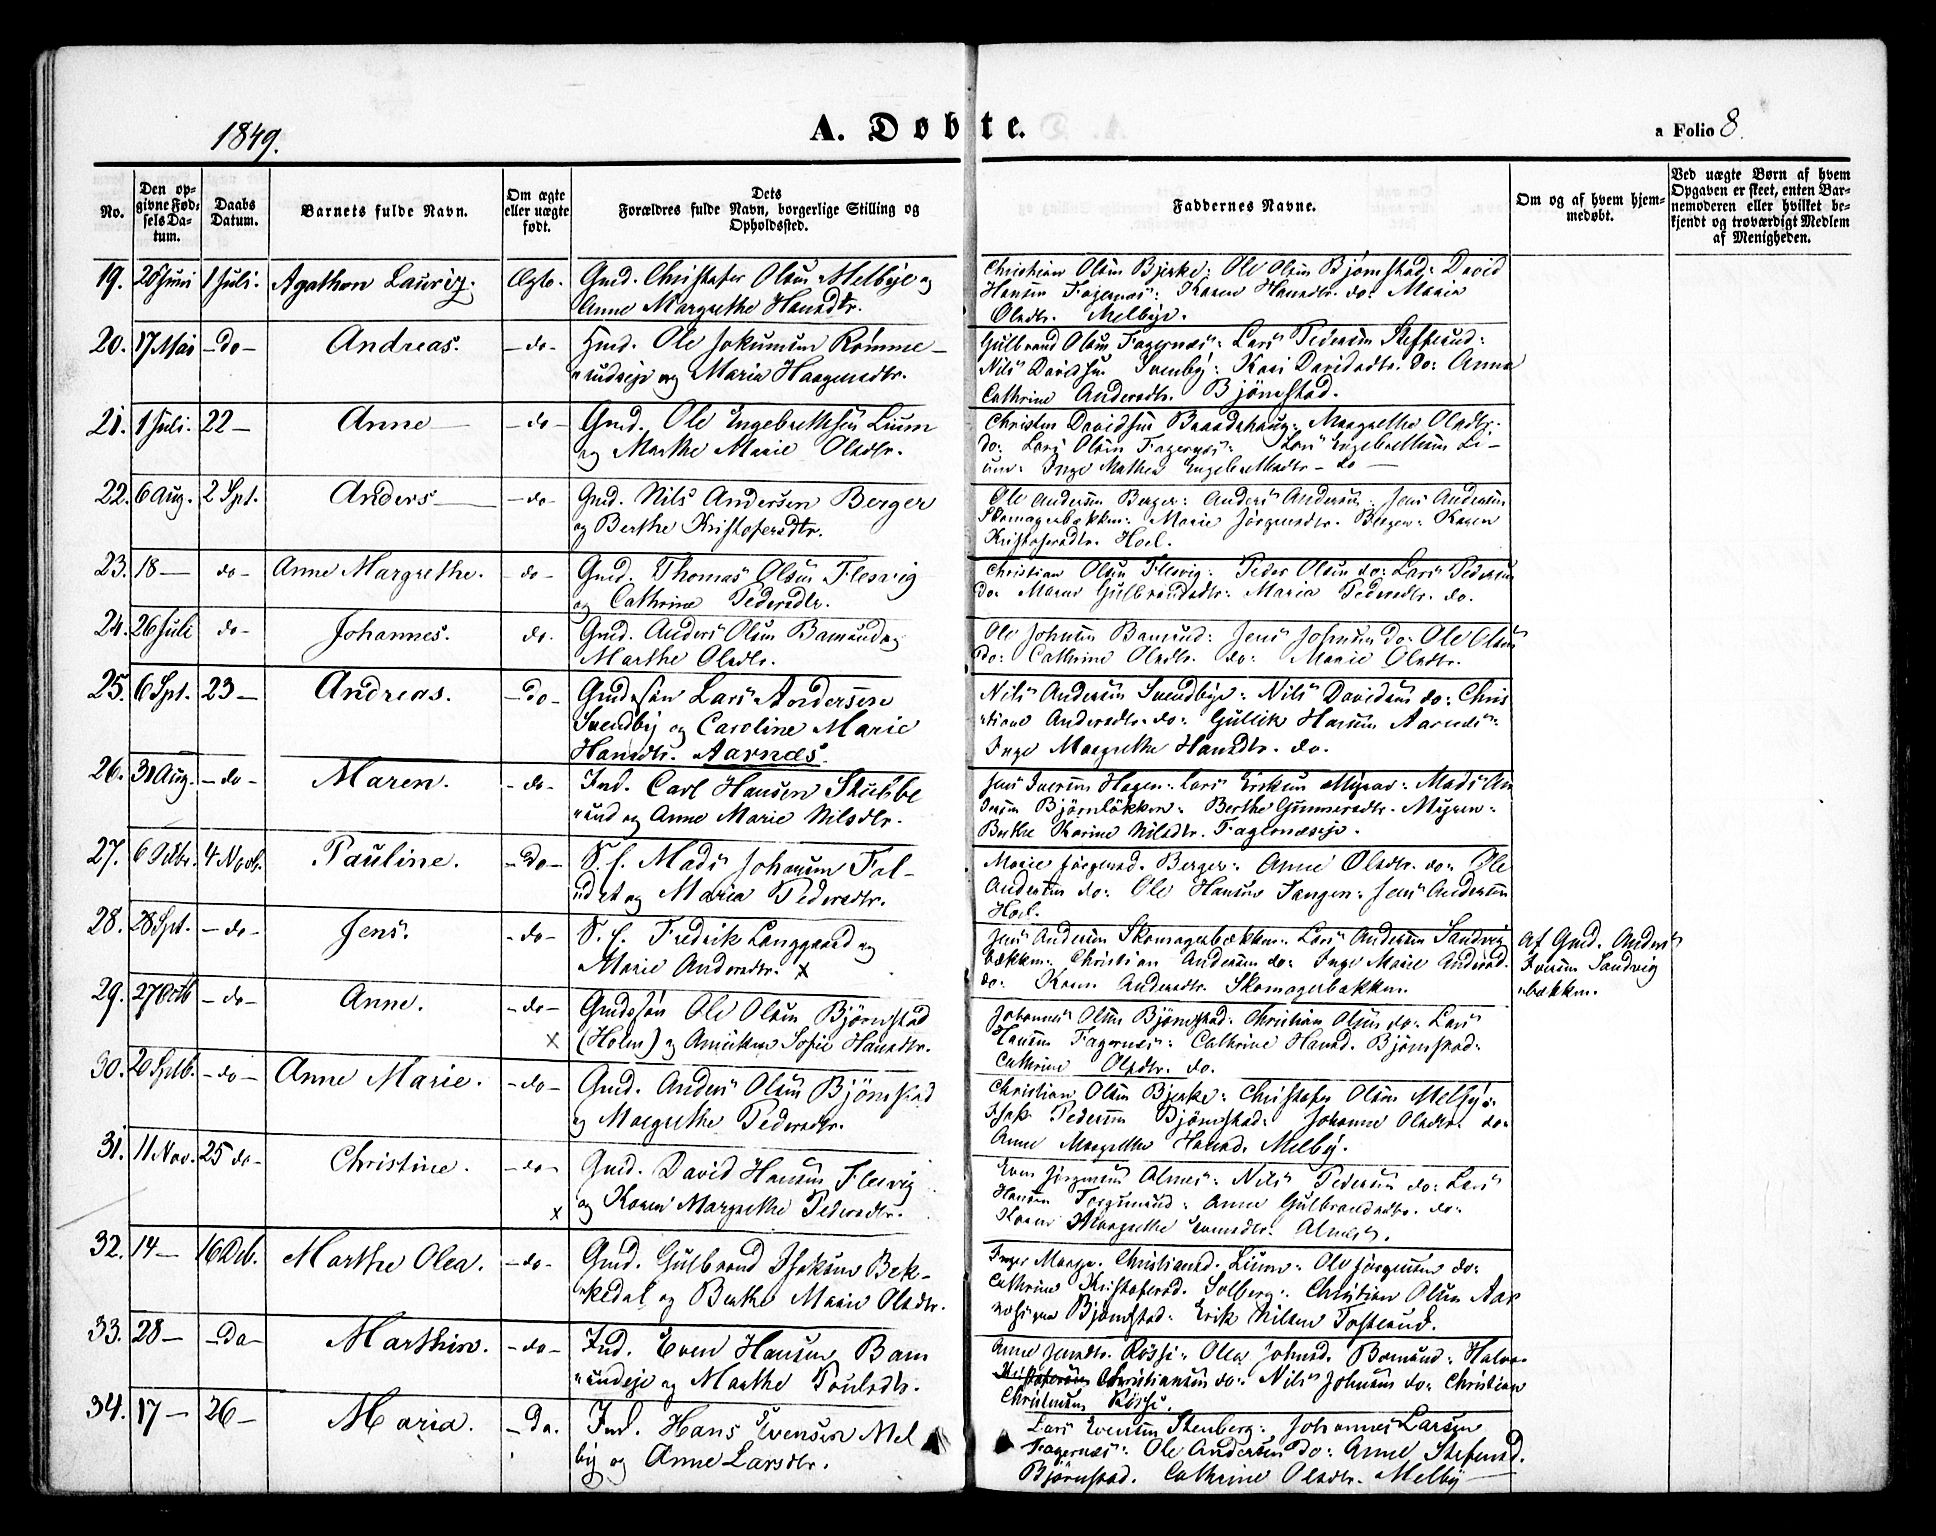 1849.
A. Døbte.
a Folio 8.
No.
Den opgivne Fødsels Datum.
Daabs Datum.
Barnets fulde Navn.
Om ægte eller uægte født.
Dets Forældres fulde Navn, borgerlige Stilling og Opholdssted.
Faddernes Navne.
Om og af hvem hjemmedøbt.
Ved uægte Børn af hvem Opgaven er skeet, enten Barnemoderen eller hvilket bekjendt og troværdigt Medlem af Menigheden.
19. 28 Juni 1 Juli. Agathon Lauritz. Ægte. Gmd. Christofer Olsen Melbye og
Anne Margrethe Hansdtr.
Christian Olsen Bjerke: Ole Olsen Bjørnstad: David
Hansen Fagernæs: Karen Hansdtr. do: Maria
Olsdtr. Melbye.
20. 17 Mai - do - Andreas. - do - Hmd. Ole Jokumsen Romme-
rudeje og Maria Haagensdtr.
Gulbrand Olsen Fagernæs: Lars Pedersen Stefferud:
Nils Davidsen Svenby: Kari Davidsdtr. do: Anna
Cathrine Andersdtr. Bjørnstad.
21. 1 Juli. 22 - Anne - do - Gmd. Ole Engebrethsen Lium
og Marthe Marie Olsdtr.
Christen Davidsen Brandshaug: Margrethe Olsdtr.
do: Lars Olsen Fagernæs: Lars Engebrethsen Li-
um: Inge Mathea Engebrethsdtr - do -
22. 6 Aug. 2 Spt. Anders - do - Gmd. Nils Andersen Berger
og Berthe Kristofersdtr.
Ole Andersen Berger: Anders Andersen: Jens Andersen
Skomagerbækken: Marie Jörgensdtr. Berger: Karen
Kristofersdtr. Hoel.
23. 18 - do - Anne Margrethe. - do - Gmd. Thomas Olsen Flesvig
og Cathrine Pedersdtr.
Christian Olsen Flesvig: Peder Olsen do: Lars Pedersen
do: Maren Gulbrandsdtr: Maria Pedersdtr. do.
24. 26 Juli do - Johannes. do. Gmd. Anders Olsen Bamrud og
Marthe Olsdtr.
Ole Johnsen Bamrud: Jens Johnsen do: Ole Olsen
do: Cathrine Olsdtr. do: Marie Olsdtr.
25. 6 Spt. 23 - Andreas. - Do - Gmdssøn Lars Andersen
Svendby og Caroline Marie
Hansdtr. Aarnæs.
Nils Andersen Svendbye: Nils Davidsen do: Chris
tiane Andersdtr. do: Gullik Hansen Aarnæs:
Inge Margrethe Hansdtr. do.
26. 30 Aug. - do - Maren. - do - Ind. Carl Hansen Stubbe
rud og Anne Marie Nilsdtr.
Jens Iversen Hagen: Lars Eriksen Myren: Mads An
dersen Bjørnløkken: Berthe Gunnersdtr. Myren:
Berthe Karine Nilsdtr. Fagernæseje.
27. 6 Octbr. 4 Novb. Pauline. - Do - S. f. Mads Johansen Fal-
det og Maria Pedersdtr.
Marie Jörgensd. Berger: Anne Olsdtr. do: Ole
Andersen do: Ole Hansen Tangen: Jens Andersen
Hoel.
28. 28 Spt. - do - Jens. - do - S. f. Fredrik Langgaard og
Marie Andersdtr. x
Jens Andersen Skomagerbækken: Lars Andersen Sandvig
bækken: Christian Andersen do: Inge Marie Andersd.
do: Karen Andersdtr. Skomagerbækken.
Af Gmd. Anders
Iversen Sandvig
bækken.
29. 27 Octb - do - Anne. - do - Gmdssøn Ole Olsen Bjørnstad
x (Holen) og Anniken Sofie Hansdtr.
Johannes Olsen Bjørnstad: Christian Olsen do: Lars
Hansen Fagernæs: Cathrine Hansd. Bjørnstad:
Cathrine Olsdtr. do.
30. 20 Septb. - do - Anne Marie. - do - Gmd. Anders Olsen Bjørnstad
og Margrethe Pedersdtr.
Christian Olsen Bjerke: Christofer Olsen Melbye:
Isak Pedersen Bjørnstad: Johanne Olsdtr. do:
Anne Margrethe Hansd. Melby.
31. 11 Nov. 25 do - Christine. - do - Gmd. David Hansen Flesvig
x og Karen Margrethe Pedersdtr.
Even Jörgensen Alnæs: Nils Pedersen do: Lars
Hansen: Anne Gulbrandsdtr. do:
Karen Margrethe Evensdtr. Alnæs.
32. 14 - 16 Deb. Marthe Olea. - do - Gmd. Gulbrand Isaksen Bek-
kedal og Berthe Marie Olsdtr.
Inger Margr. Christiansd. Lium: Ole Jörgensen do:
Cathrine Kristofersd. Solberg: Christian Olsen Aar
Bjørnstad: Erik Nilsen Tostrud.
33. 28 - - Do - Marthin. - do - Ind. Even Hansen Bam
rudeje og Marthe Poulsdtr.
Anne Jensdtr. Røssi: Olea Johnsd. Bamrud: Halvor
Christiansen do: Nils Johnsen do: Christian
Christensen Røssi.
34. 17 - 26 - Maria. - Do. Ind. Hans Evensen Mel
by og Anne Larsdtr.
Lars Evensen Stenberg: Johannes Larsen
Fagernæs: Ole Andersen do: Anne Stefensd.
Bjørnstad. Cathrine Olsdtr. Melby